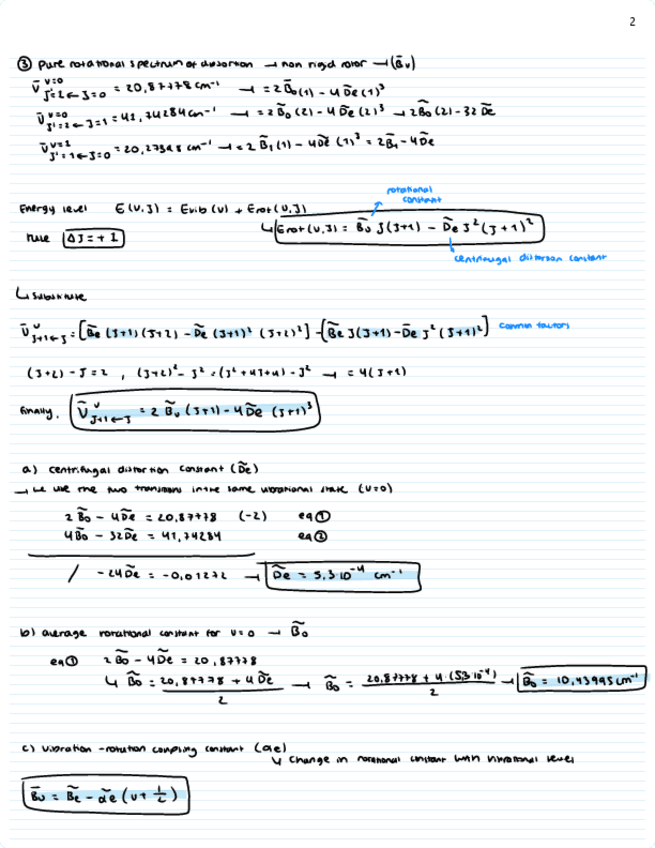 2
③ Pure rotational spectrum of absorption → non rigid rotor → (B̃v)
ν̃ᵛ⁼⁰ J'=1←J=0 = 20,87778 cm⁻¹ → = 2B̃o(1) - 4D̃e(1)³
ν̃ᵛ⁼⁰ J'=2←J=1 = 41,74284 cm⁻¹ → = 2B̃o(2) - 4D̃e(2)³ → 2B̃o(2) - 32D̃e
ν̃ᵛ⁼¹ J'=1←J=0 = 20,27348 cm⁻¹ → = 2B̃1(1) - 4D̃e(1)³ = 2B̃1 - 4D̃e
rotational
constant
Energy level E(v,J) = Evib(v) + Erot(v,J)
↳ Erot(v,J) = B̃v J(J+1) - D̃e J²(J+1)²
rule ΔJ = + 1
centrifugal distorsion constant
↳ substitute
ν̃ᵛ J+1←J = [B̃e (J+1)(J+2) - D̃e (J+1)² (J+2)²] - [B̃e J(J+1) - D̃e J² (J+1)²] common factors
(J+2) - J = 2 , (J+2)² - J² = (J² + 4J + 4) - J² → = 4(J+1)
finally, ν̃ᵛ J+1←J = 2 B̃v (J+1) - 4D̃e (J+1)³
a) centrifugal distortion constant (D̃e)
→ we use the two transitions in the same vibrational state (v=0)
2B̃o - 4D̃e = 20,87778 (-2) eq①
4B̃o - 32D̃e = 41,74284 eq②
/ -24D̃e = -0,01272 → D̃e = 5,3·10⁻⁴ cm⁻¹
b) average rotational constant for v=0 → B̃o
eq① 2B̃o - 4D̃e = 20,87778
↳ B̃o = 20,87778 + 4D̃e / 2 → B̃o = 20,87778 + 4·(5,3·10⁻⁴) / 2 → B̃o = 10,43995 cm⁻¹
c) vibration-rotation coupling constant (αe)
↳ change in rotational constant with vibrational level
B̃v = B̃e - α̃e (v + 1/2)